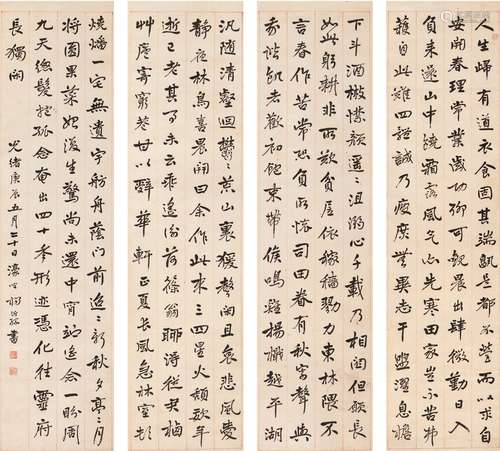 人生歸有道衣食固其端孰是都不營而以求自
安開春理常業歲功聊可觀晨出肆微勤日入
負耒還山中饒霜露風氣亦先寒田家豈不苦弗
獲自此難四體誠乃疲庶無異患干盥濯息檐
下斗酒散襟顏遙〻沮溺心千載乃相關但願長
如此躬耕非所歎貧居依稼穡勠力東林隈不
言春作苦常恐負所懷司田眷有秋寄聲與
我諧飢者歡初飽束帶候鳴雞揚檝越平湖
汎隨清壑迴鬱〻荒山裏猨聲閑且哀悲風愛
靜夜林鳥喜晨開曰余作此來三四星火頹姿年
逝已老其事未云乖遙謝荷蓧翁聊得從君栖
草廬寄窮巷甘以辭華軒正夏長風急林室頓
燒燔一宅無遺宇舫舟蔭門前迢〻新秋夕亭〻月
將圓果菜始復生驚鳥尚未還中宵竚遙念一盼周
九天總髮抱孤念奄出四十年形迹憑化往靈府
長獨閑
光緒庚辰五月二十日濠叟楊沂孫書